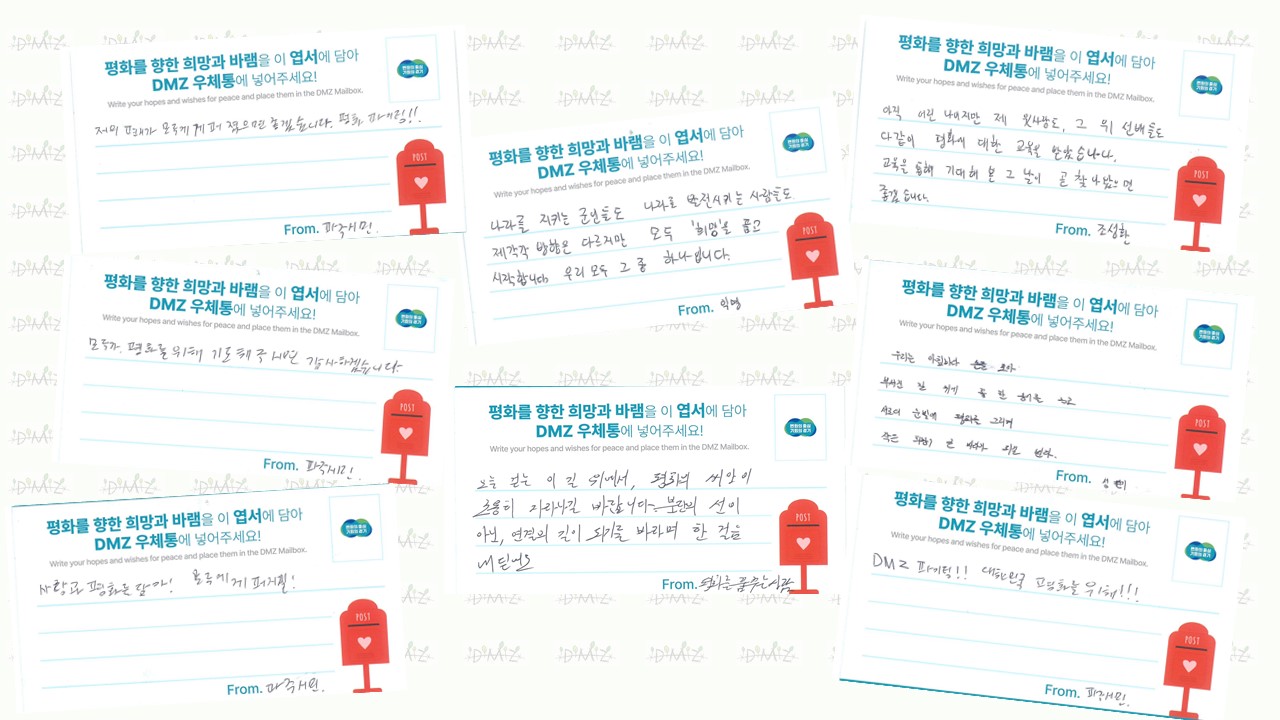 평화를 향한 희망과 바램을 이 엽서에 담아
DMZ 우체통에 넣어주세요!
Write your hopes and wishes for peace and place them in the DMZ Mailbox.
평화의 중심
기회의 경기
모두에게 퍼졌으면 좋겠습니다. 평화 파이팅!!
POST
From. 파주시민.
평화를 향한 희망과 바램을 이 엽서에 담아
DMZ 우체통에 넣어주세요!
Write your hopes and wishes for peace and place them in the DMZ Mailbox.
평화의 중심
기회의 경기
나라를 지키는 군인들도 나라를 발전시키는 사람들도
제각각 방향은 다르지만 모두 '희망'을 품고
시작합니다. 우리 모두 그 중 하나입니다.
POST
From. 익명
평화를 향한 희망과 바램을 이 엽서에 담아
DMZ 우체통에 넣어주세요!
Write your hopes and wishes for peace and place them in the DMZ Mailbox.
평화의 중심
기회의 경기
아직 어린 나이지만 제 윗사람도, 그 위 선배들도
다같이 평화에 대한 교육을 받았습니다.
교육을 통해 기대해 본 그 날이 곧 찾아왔으면
좋겠습니다.
POST
From. 조성환
평화를 향한 희망과 바램을 이 엽서에 담아
DMZ 우체통에 넣어주세요!
Write your hopes and wishes for peace and place them in the DMZ Mailbox.
평화의 중심
기회의 경기
모두가 평화를 위해 기도해주시면 감사하겠습니다.
POST
From. 파주시민.
평화를 향한 희망과 바램을 이 엽서에 담아
DMZ 우체통에 넣어주세요!
Write your hopes and wishes for peace and place them in the DMZ Mailbox.
평화의 중심
기회의 경기
오늘 걷는 이 길 위에서, 평화의 씨앗이
조용히 자라나길 바랍니다. 분단의 선이
아닌, 연결의 길이 되기를 바라며 한 걸음
내딛어요
POST
From. 평화를 꿈꾸는 사람
평화를 향한 희망과 바램을 이 엽서에 담아
DMZ 우체통에 넣어주세요!
Write your hopes and wishes for peace and place them in the DMZ Mailbox.
평화의 중심
기회의 경기
우리는
서로의 눈빛에 평화를 그리며
POST
From.
평화를 향한 희망과 바램을 이 엽서에 담아
DMZ 우체통에 넣어주세요!
Write your hopes and wishes for peace and place them in the DMZ Mailbox.
평화의 중심
기회의 경기
사랑과 평화를 담아! 모두에게 퍼지길!
POST
From. 파주시민.
평화를 향한 희망과 바램을 이 엽서에 담아
DMZ 우체통에 넣어주세요!
Write your hopes and wishes for peace and place them in the DMZ Mailbox.
평화의 중심
기회의 경기
DMZ 파이팅!! 대한민국 평화를 위해!!!
POST
From. 파주시민.